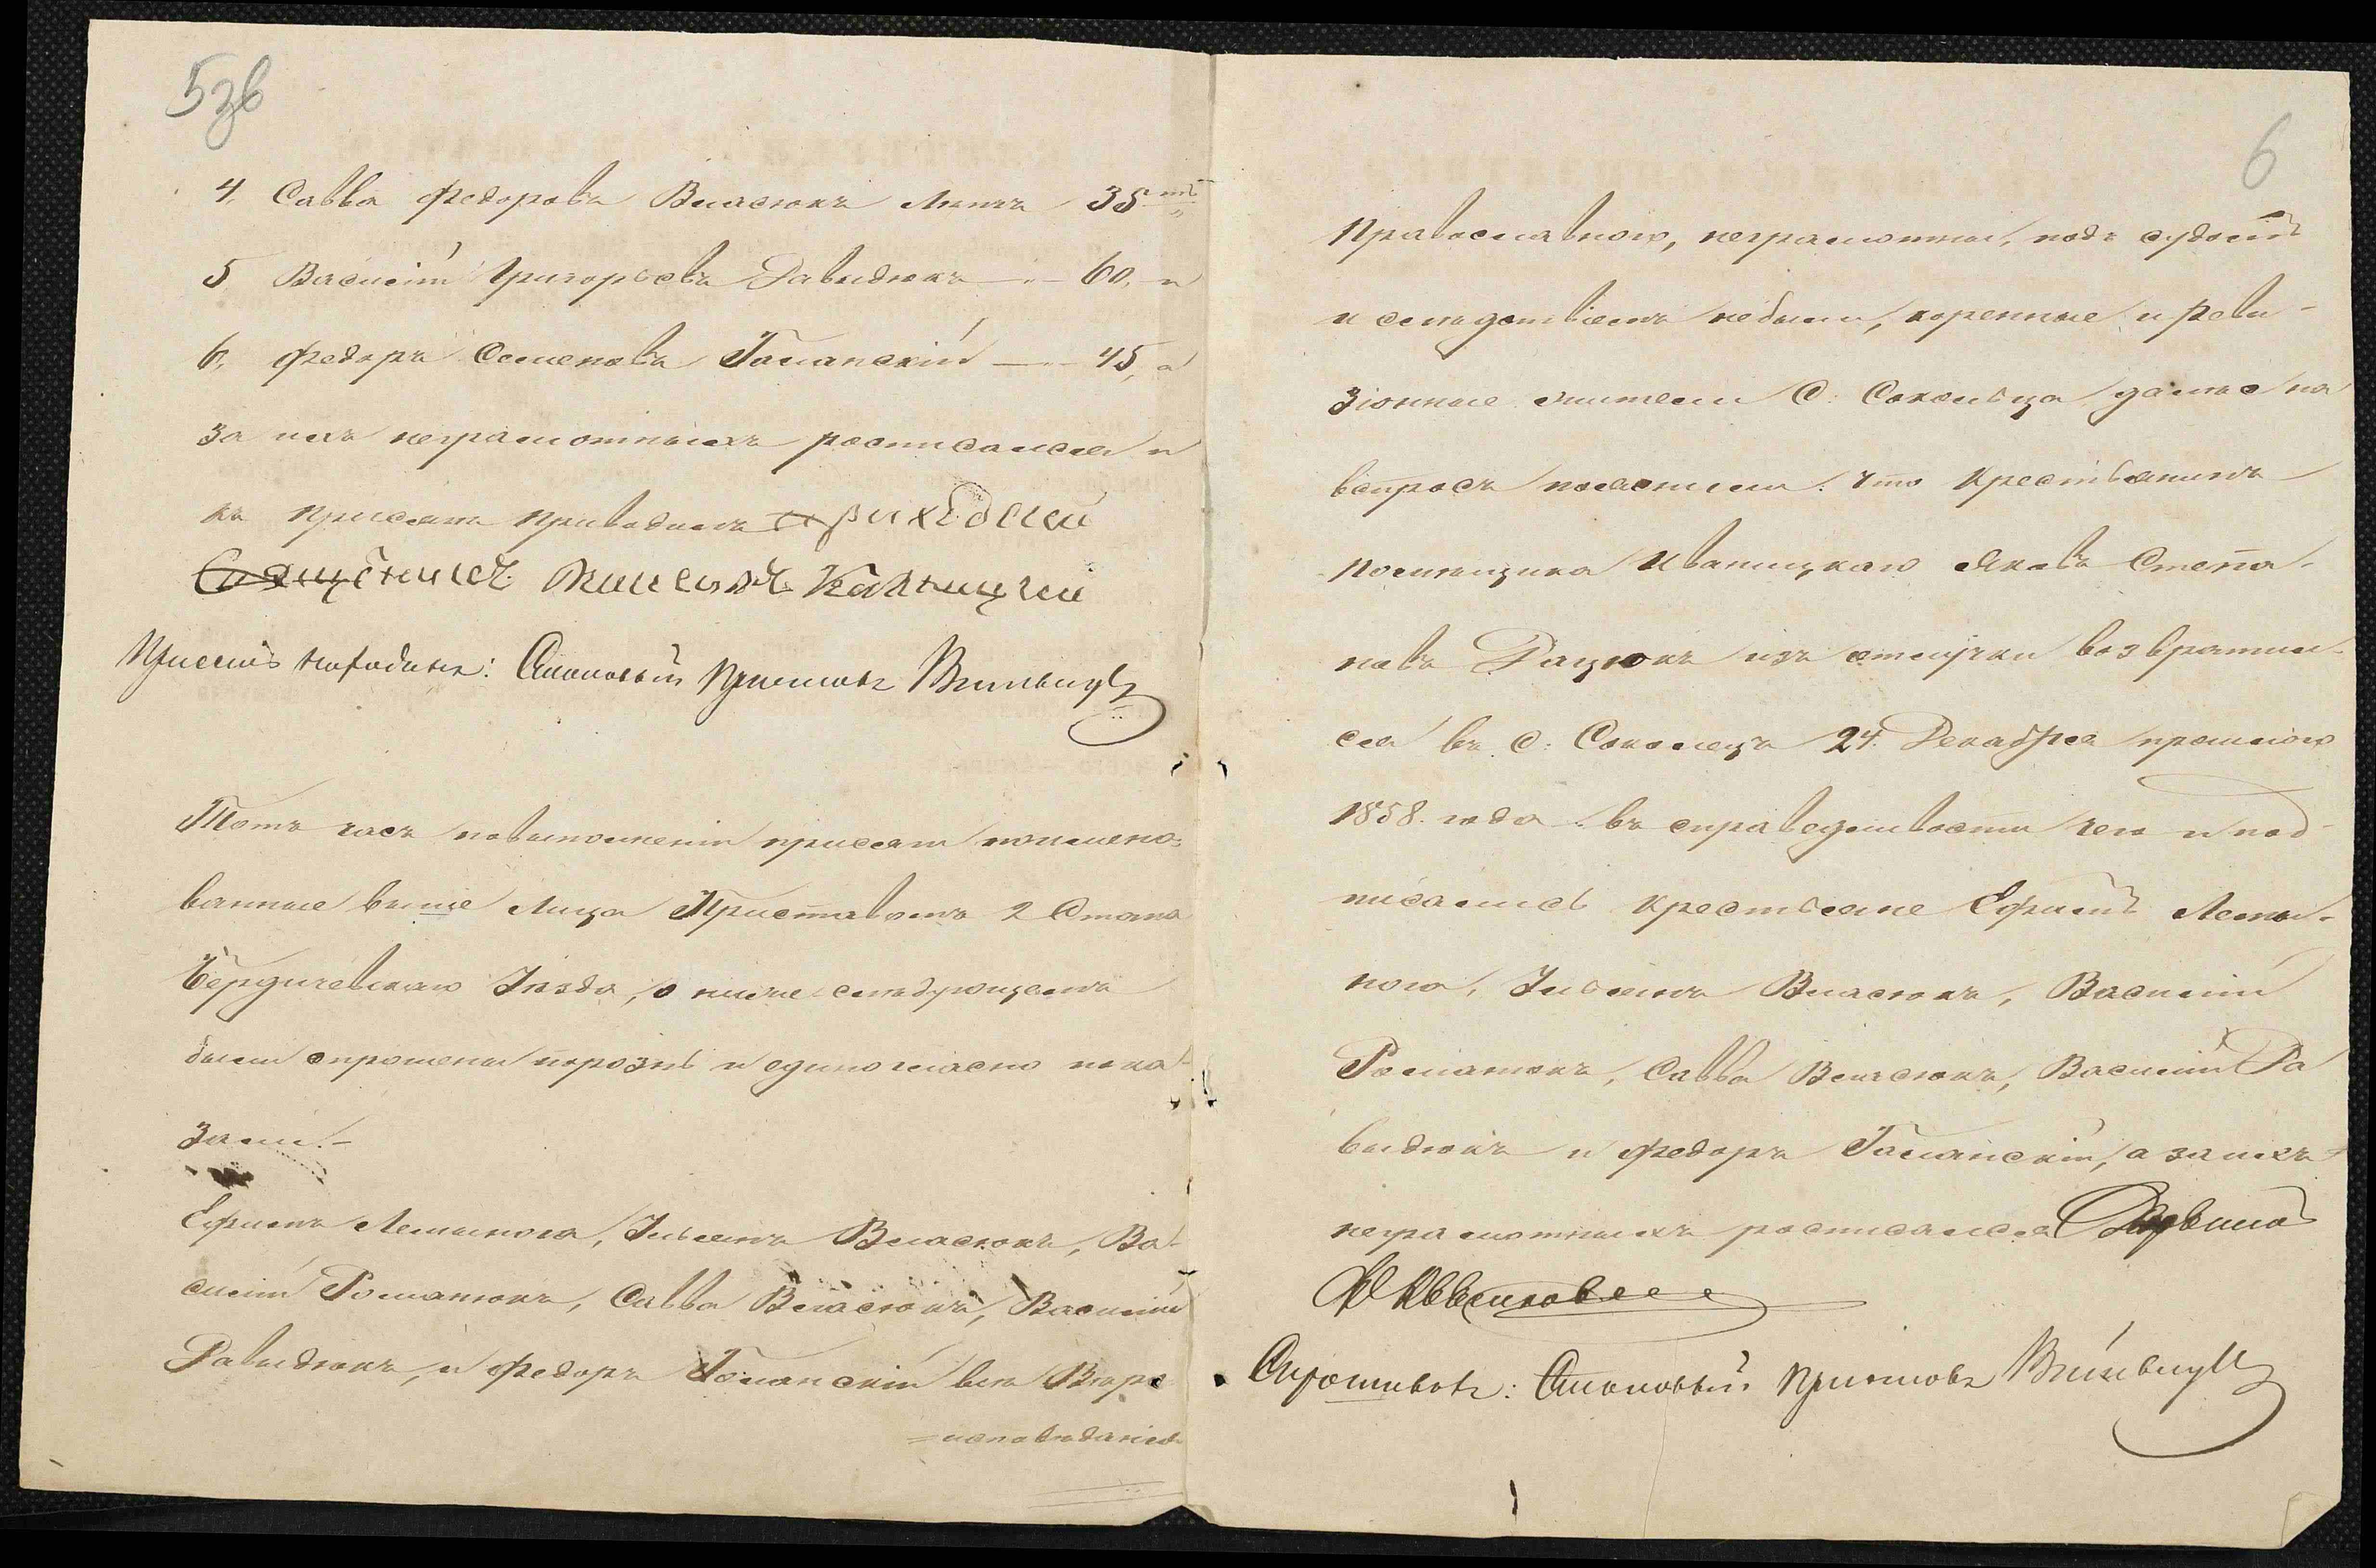 5зв
4, Савва Федоровъ Власюкъ Лѣтъ 35 тъ
5 Василій Григорьевъ Давидюкъ — 60, "
6, Федоръ Семеновъ Гоманскій — 45, "
За ихъ неграмотныхъ росписался и
къ присягѣ приводилъ приходскій
Священникъ
Присягѣ наводилъ: Становый Приставъ
Тотъ часъ повыполненіи присяги поимено-
ванные выше Лица Приставомъ 2 Стана
Бердичевскаго Уѣзда, о ниже слѣдующемъ
были опрошены порознь и единогласно пока-
зали.-
Ефимъ Лемынога, Ульянъ Власюкъ, Ва-
силій Романюкъ, Савва Власюкъ, Василій
Давидюкъ, и Федоръ Гоманскій всѣ Вѣро-
=исповѣданія
6
Православного, неграмотны, подъ судомъ
и слѣдствіемъ небыли, коренные и реви-
зіонные жители С: Сокольца далѣе на
вопросъ пояснили: что Крестьянинъ
помѣщика Иваницкаго Яковъ Степа-
новъ Дацюкъ изъ отлучки возвратил-
ся въ С: Соколецъ 24. Декабря прошлого
1858. года. въ справедливости чего и под-
писались крестьяне Ефимъ Лемы-
нога, Ульянъ Власюкъ, Василій
Романюкъ, Савва Власюкъ, Василій Да
видюкъ и Федоръ Гоманскій, а за ихъ
неграмотныхъ росписался
Спрашивалъ: Становый Приставъ